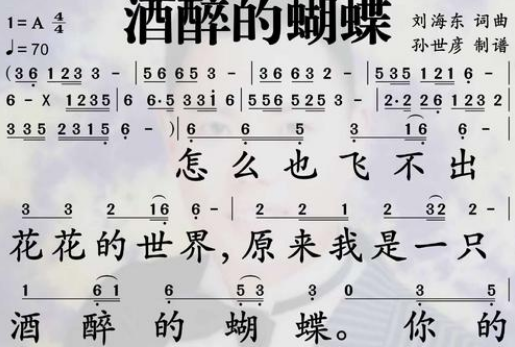 酒醉的蝴蝶
1=A 4/4
刘海东 词曲
♩=70
孙世彦 制谱
(36 123 3 - | 56653 - | 36632 - | 535 1216 - |
6 - X 1235 | 6 6·5 3316 | 556 5253 - | 2·2 26 1232 |
335 23115 6 - ) | 6 6 5 3 16 6 - |
怎么也飞不出
3 3 2 16 6 - | 2 2 1 2 32 2 - |
花花的世界,原来我是一只
1 61 6 53 3 - 3 0 3 5
酒醉的蝴蝶。你的